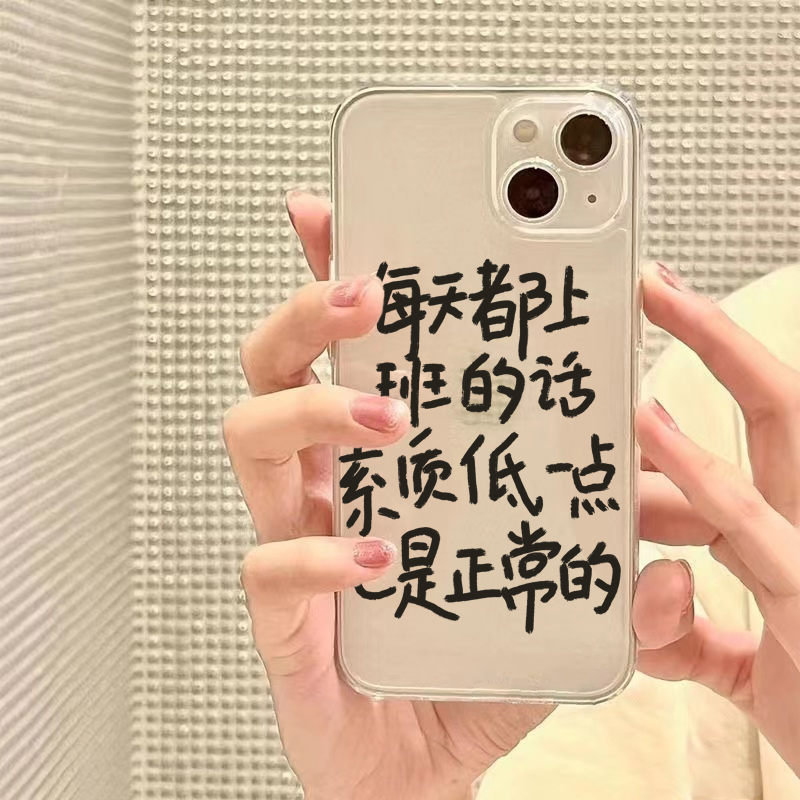 每天都上
班的话
素质低一点
也是正常的